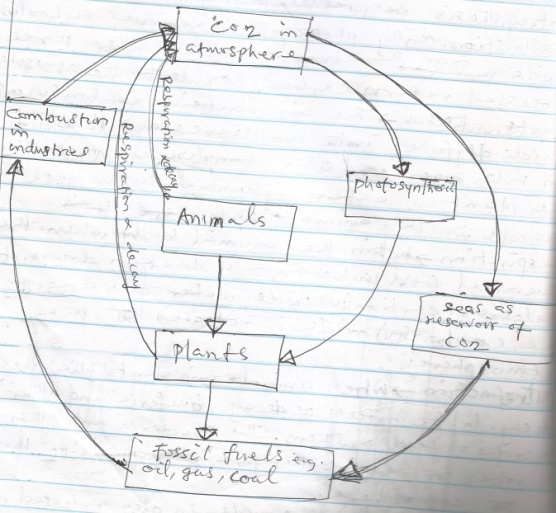 CO2 in
atmosphere
Combustion
in
industries
Respiration & decay
Respiration & decay
photosynthesis
Animals
seas as
reservoir of
CO2
plants
Fossil fuels e.g.
oil, gas, coal